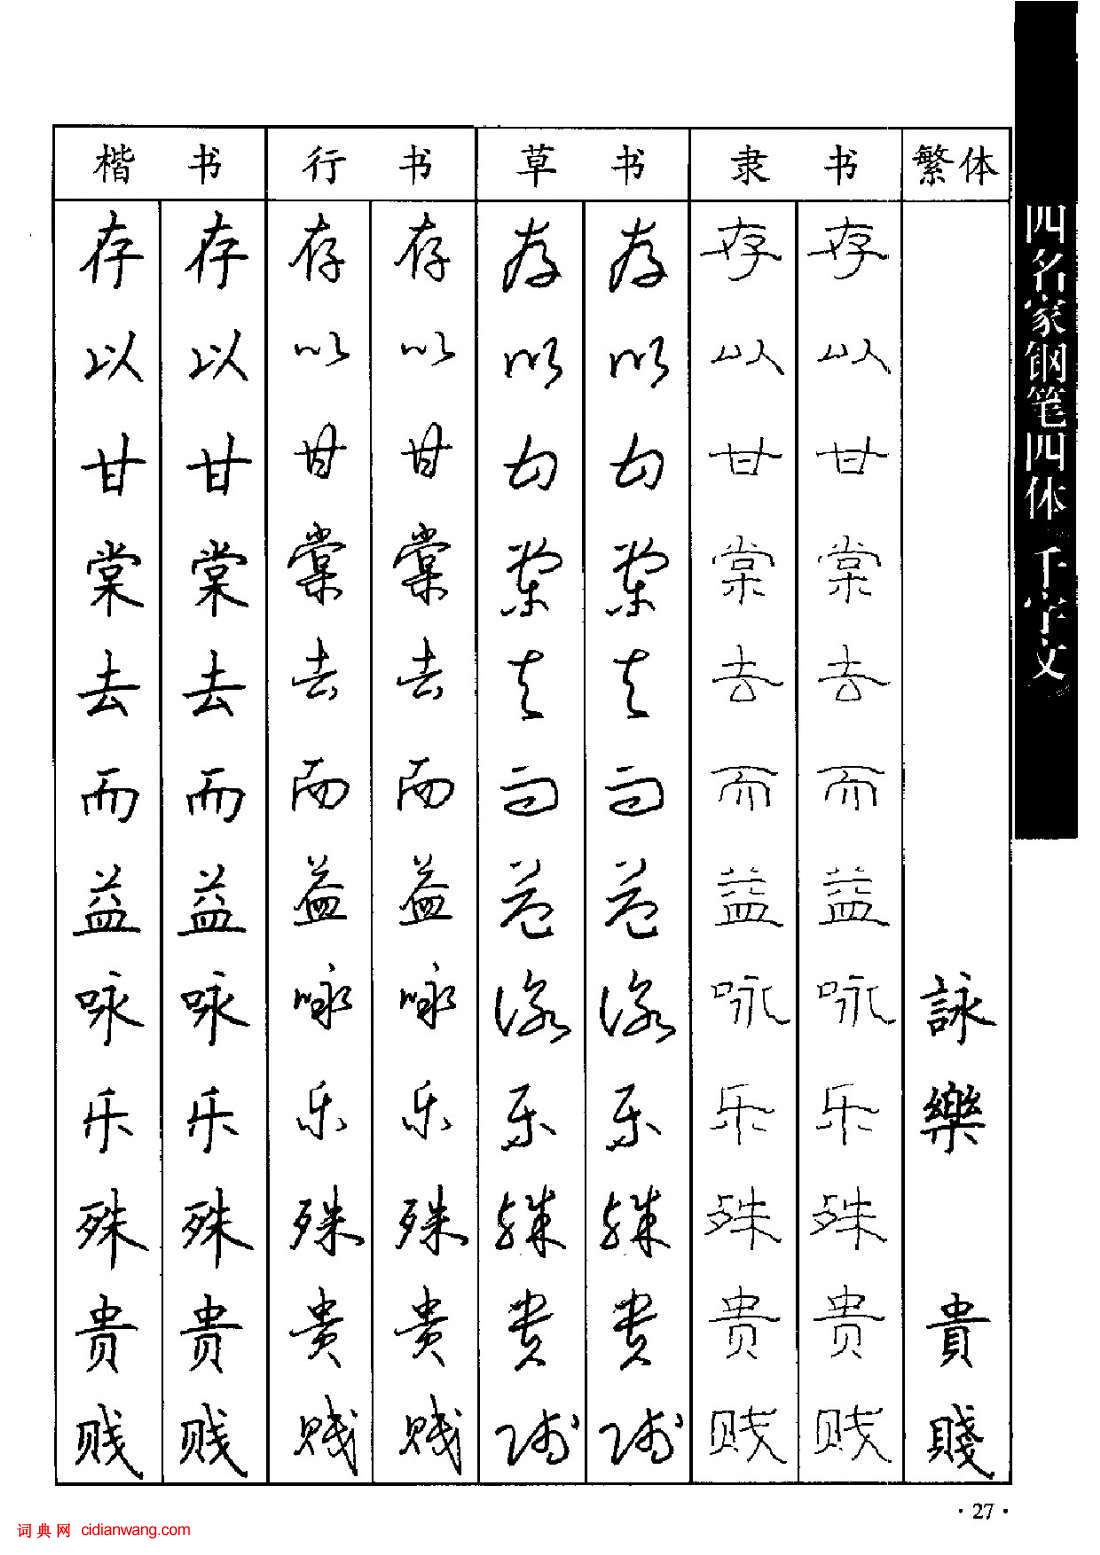 楷书 行书 草书 隶书 繁体
存 存 存 存 存 存 存 存
以 以 以 以 以 以 以 以
甘 甘 甘 甘 甘 甘 甘 甘
棠 棠 棠 棠 棠 棠 棠 棠
去 去 去 去 去 去 去 去
而 而 而 而 而 而 而 而
益 益 益 益 益 益 益 益
咏 咏 咏 咏 咏 咏 咏 咏 詠
乐 乐 乐 乐 乐 乐 乐 乐 樂
殊 殊 殊 殊 殊 殊 殊 殊
贵 贵 贵 贵 贵 贵 贵 贵 貴
贱 贱 贱 贱 贱 贱 贱 贱 賤
四名家钢笔四体千字文
·27·
词典网 cidianwang.com